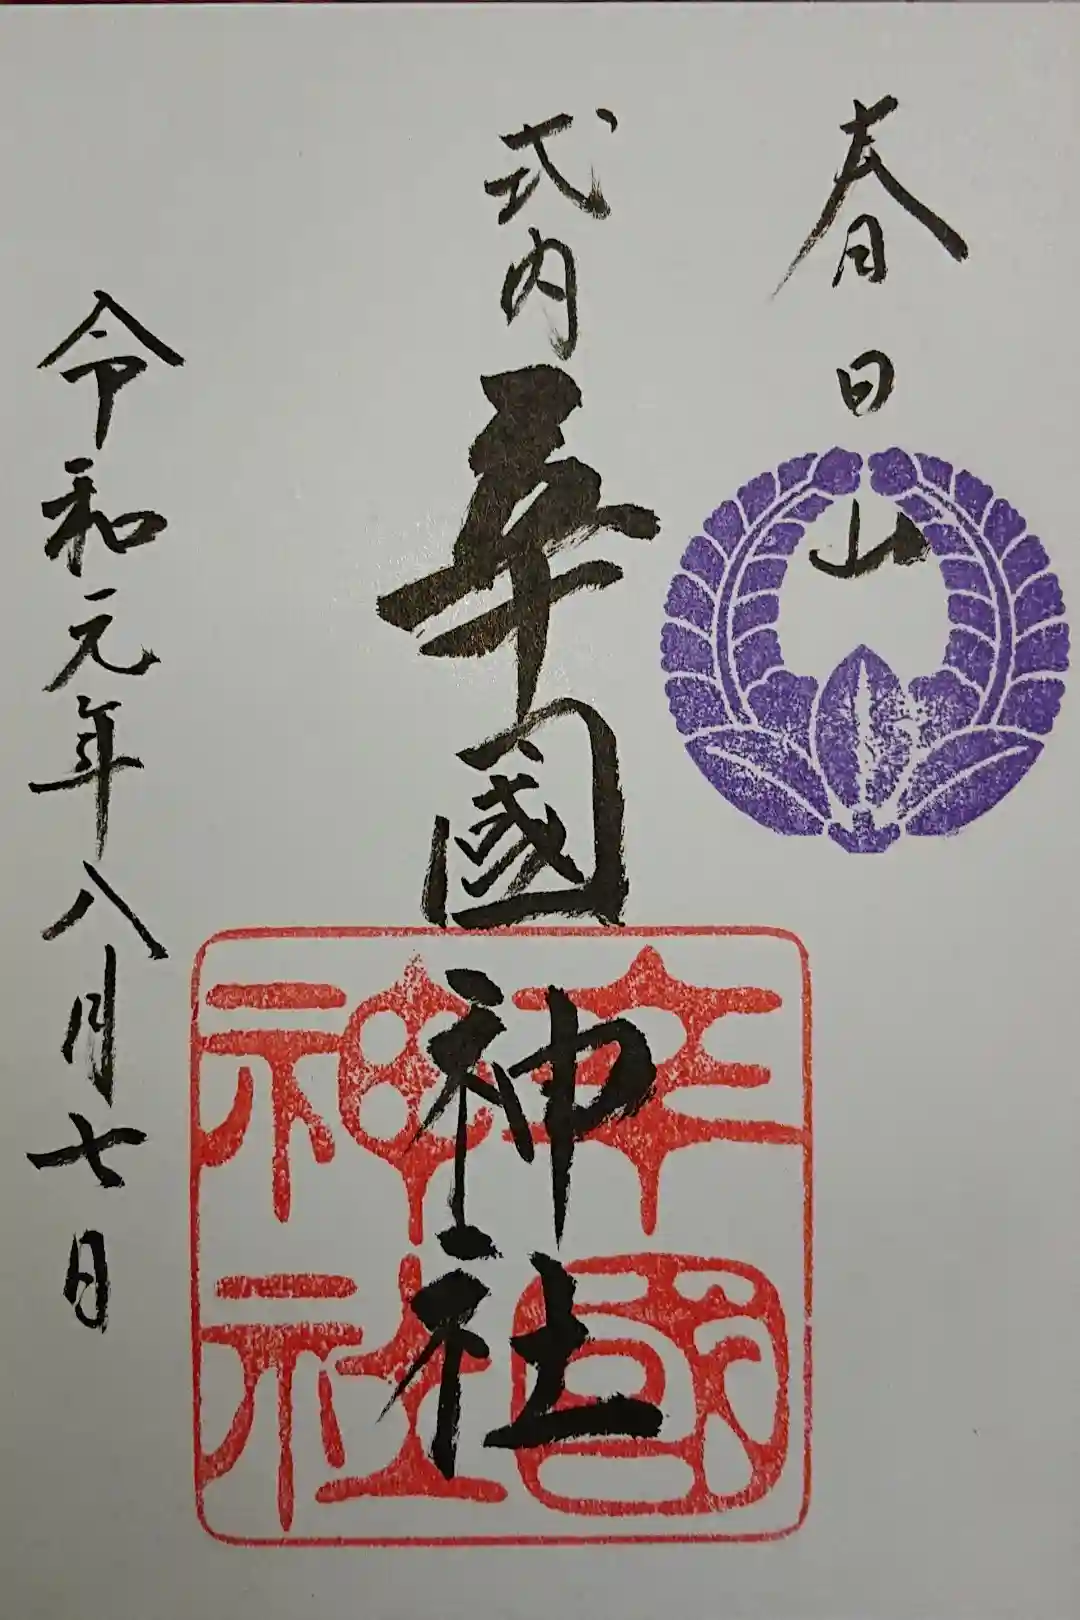 春日山
式内辛國神社
辛國
神社
令和元年八月七日